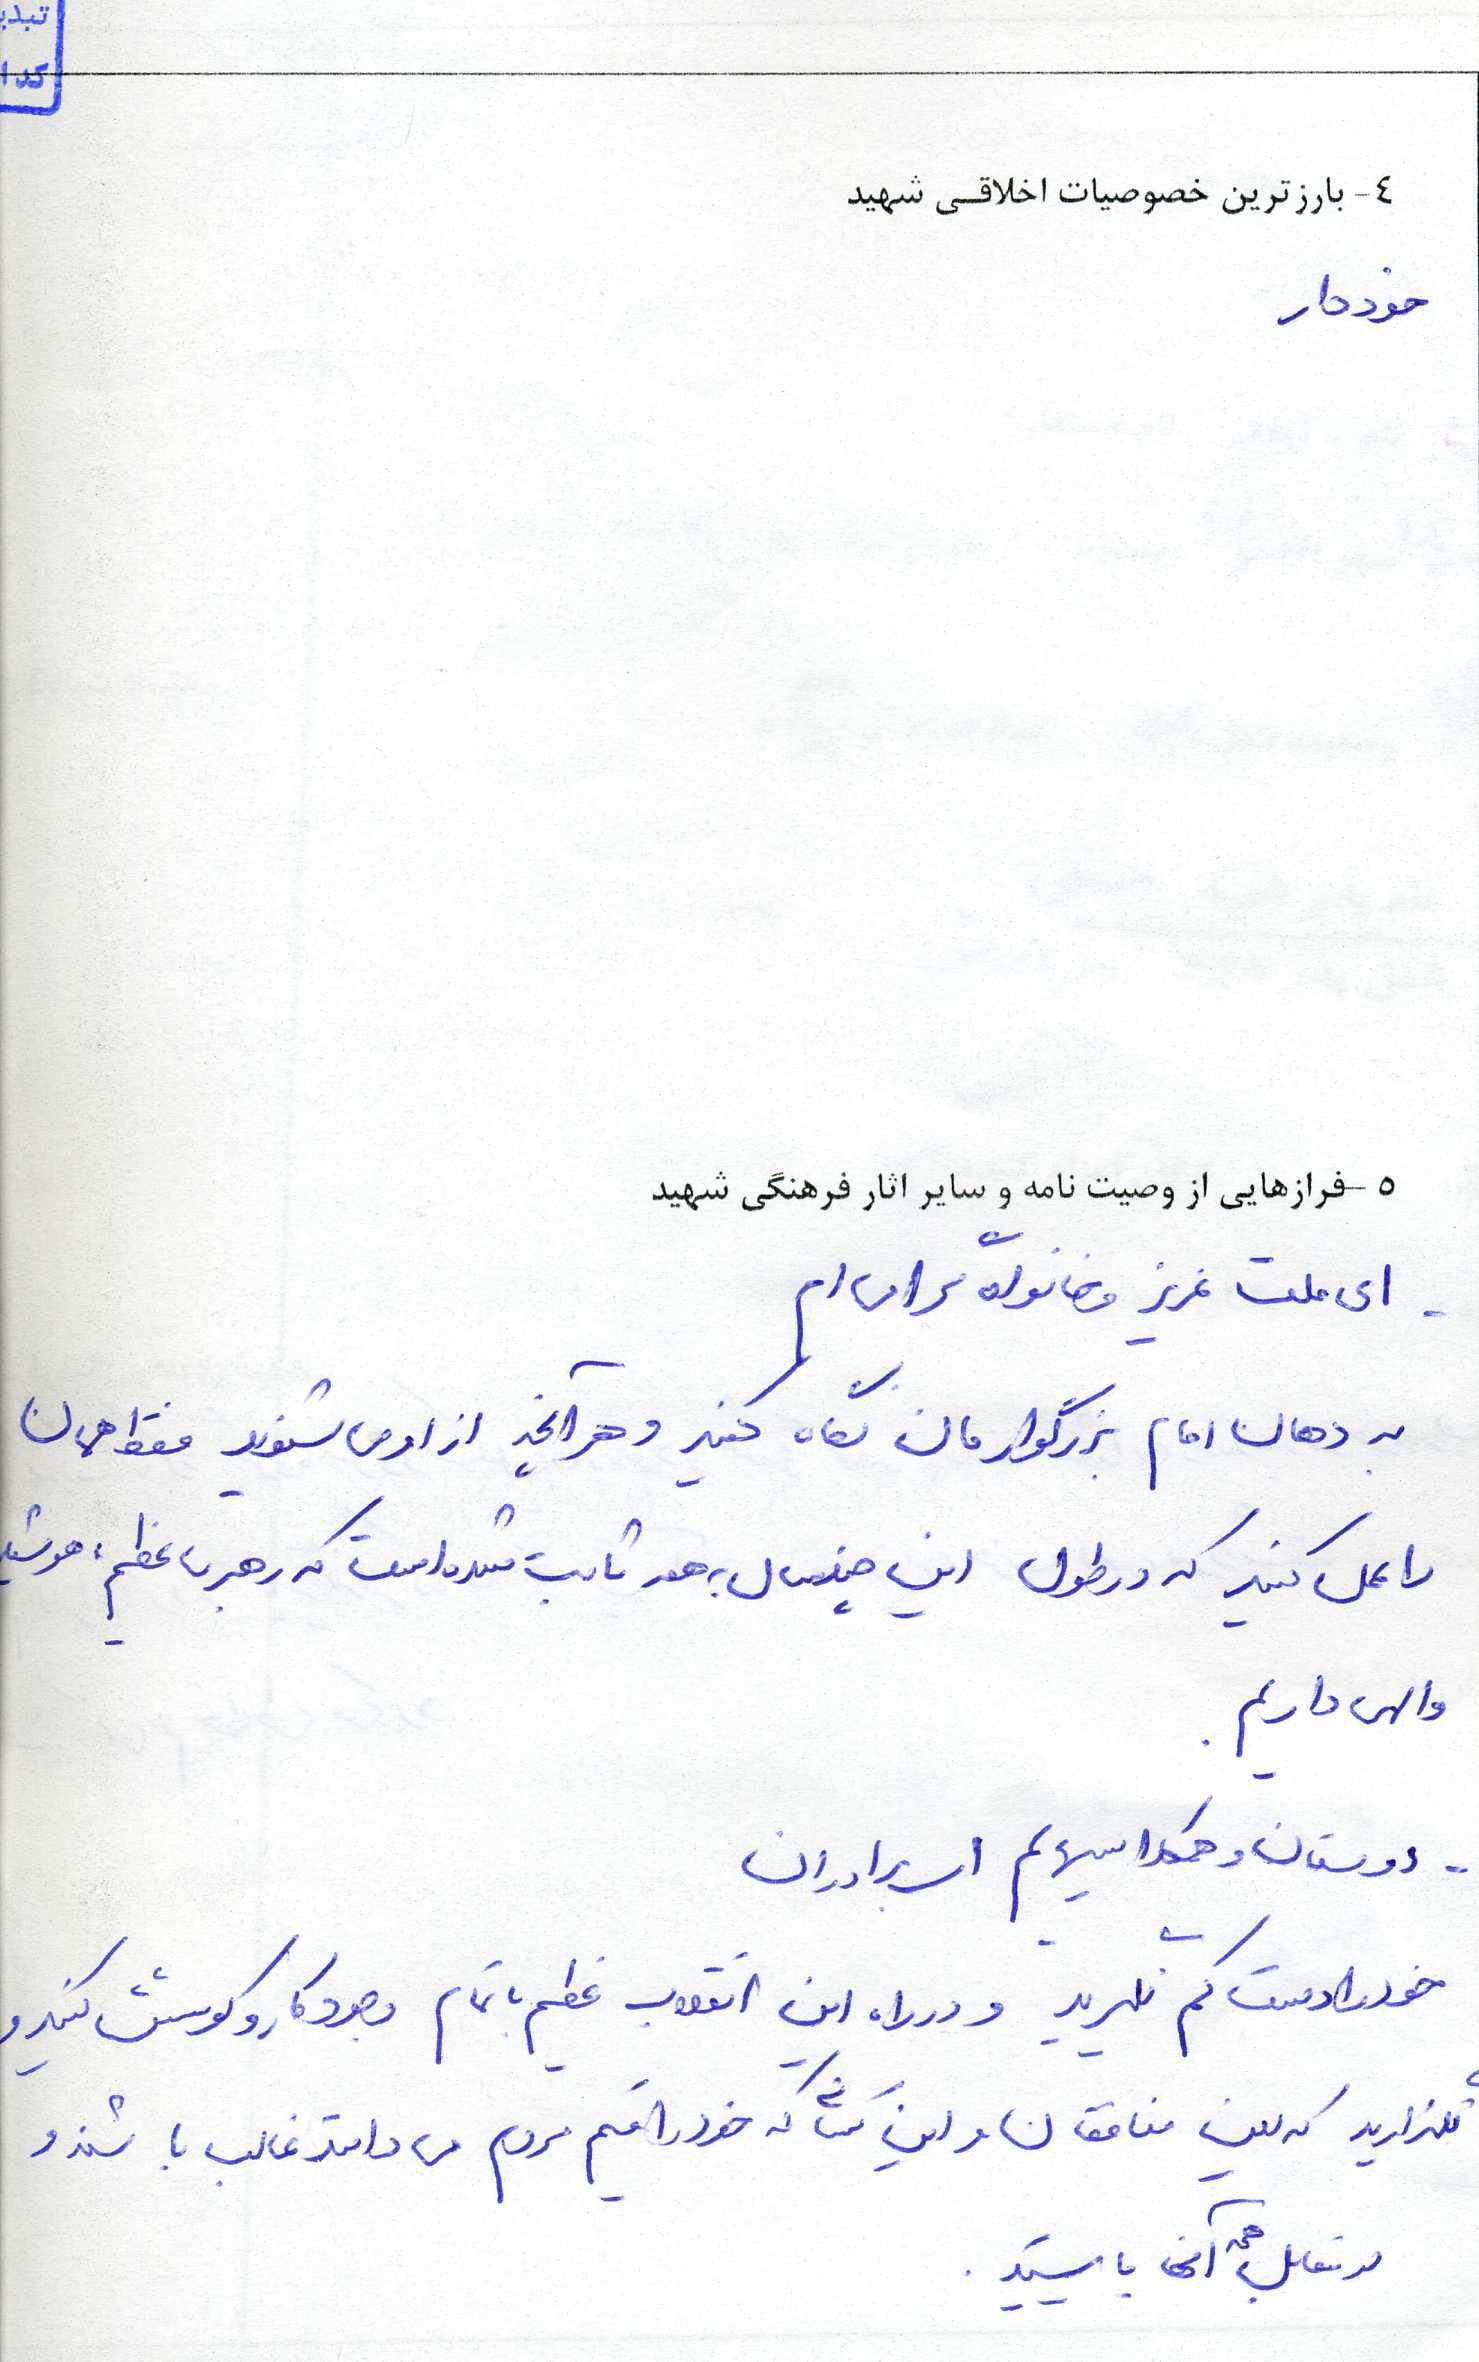 تبدی
کد ا
٤- بارزترین خصوصیات اخلاقی شهید
خوددار
٥ -فرازهایی از وصیت نامه و سایر اثار فرهنگی شهید
- ای ملت عزیز و خانواده گرامی ام
به دهان امام بزرگوارمان نگاه کنید و هر آنچه از او می شنوید فقط همان
را عمل کنید که در طول این چند سال به همه ثابت شده است که رهبری عظیم، هوشیار
و الهی داریم.
- دوستان و همکلاسیهایم ای برادران
خود را دست کم نگیرید و در راه این انقلاب عظیم با تمام وجود کار و کوشش کنید و
نگذارید که این منافقان و این کسانی که خود را قیم مردم می دانند غالب باشند و
در مقابل همه آنها بایستید.